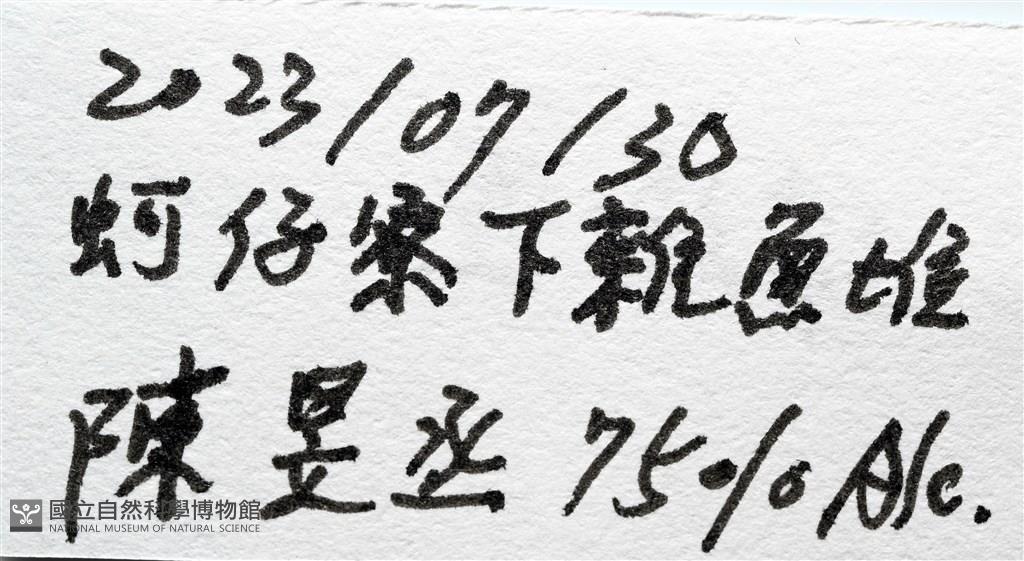 2023/07/30
蚵仔寮下雜魚堆
陳昱丞 75% Alc.
國立自然科學博物館
NATIONAL MUSEUM OF NATURAL SCIENCE